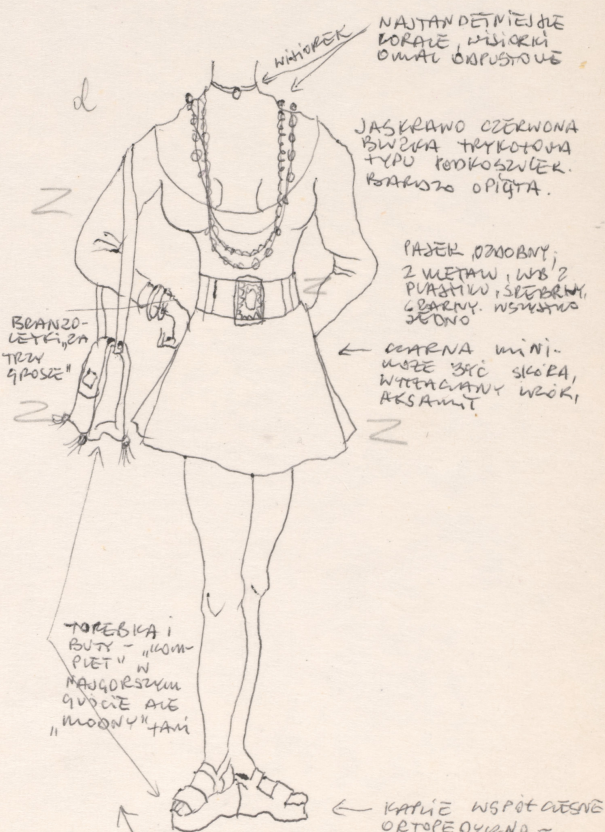 WISIOREK
NAJTANDETNIEJSZE
KORALE, WISIORKI
OMAL ODPUSTOWE
d
JASKRAWO CZERWONA
BLUZKA TRYKOTOWA
TYPU PODKOSZULEK.
BARDZO OPIĘTA.
Z
PASEK OZDOBNY,
Z METALU, LUB Z
PLASTIKU, SREBRNY,
CZARNY. WSZYSTKO
JEDNO
Z
BRANZO-
LETKI „ZA
TRZY
GROSZE"
CZARNA MINI-
MOŻE BYĆ SKÓRA,
WYTŁACZANY WZÓR,
AKSAMIT
Z
Z
TOREBKA I
BUTY - „KOM-
PLET" W
NAJGORSZYM
GUŚCIE ALE
„MODNY" TANI
KAPCIE WSPÓŁCZESNE
ORTOPEDYCZNO-